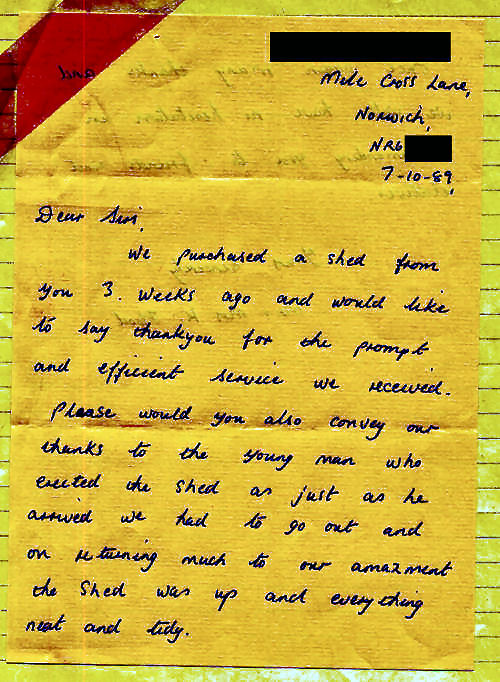 Mile Cross Lane,
Norwich,
NR6
7-10-89,
Dear Sirs,
We purchased a shed from
you 3. weeks ago and would like
to say thankyou for the prompt
and efficient service we received.
Please would you also convey our
thanks to the young man who
erected the shed as just as he
arrived we had to go out and
on returning much to our amazment
the Shed was up and everything
neat and tidy.